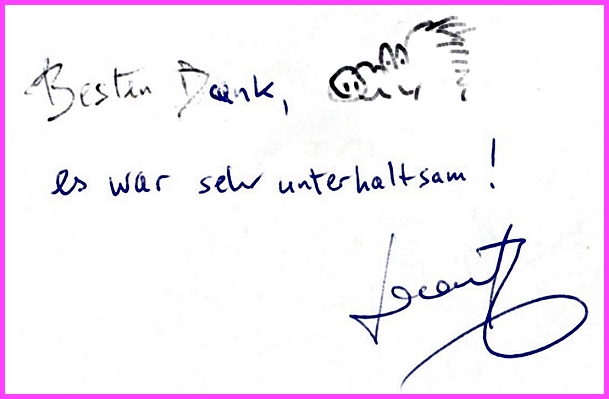 Besten Dank,
es war sehr unterhaltsam!